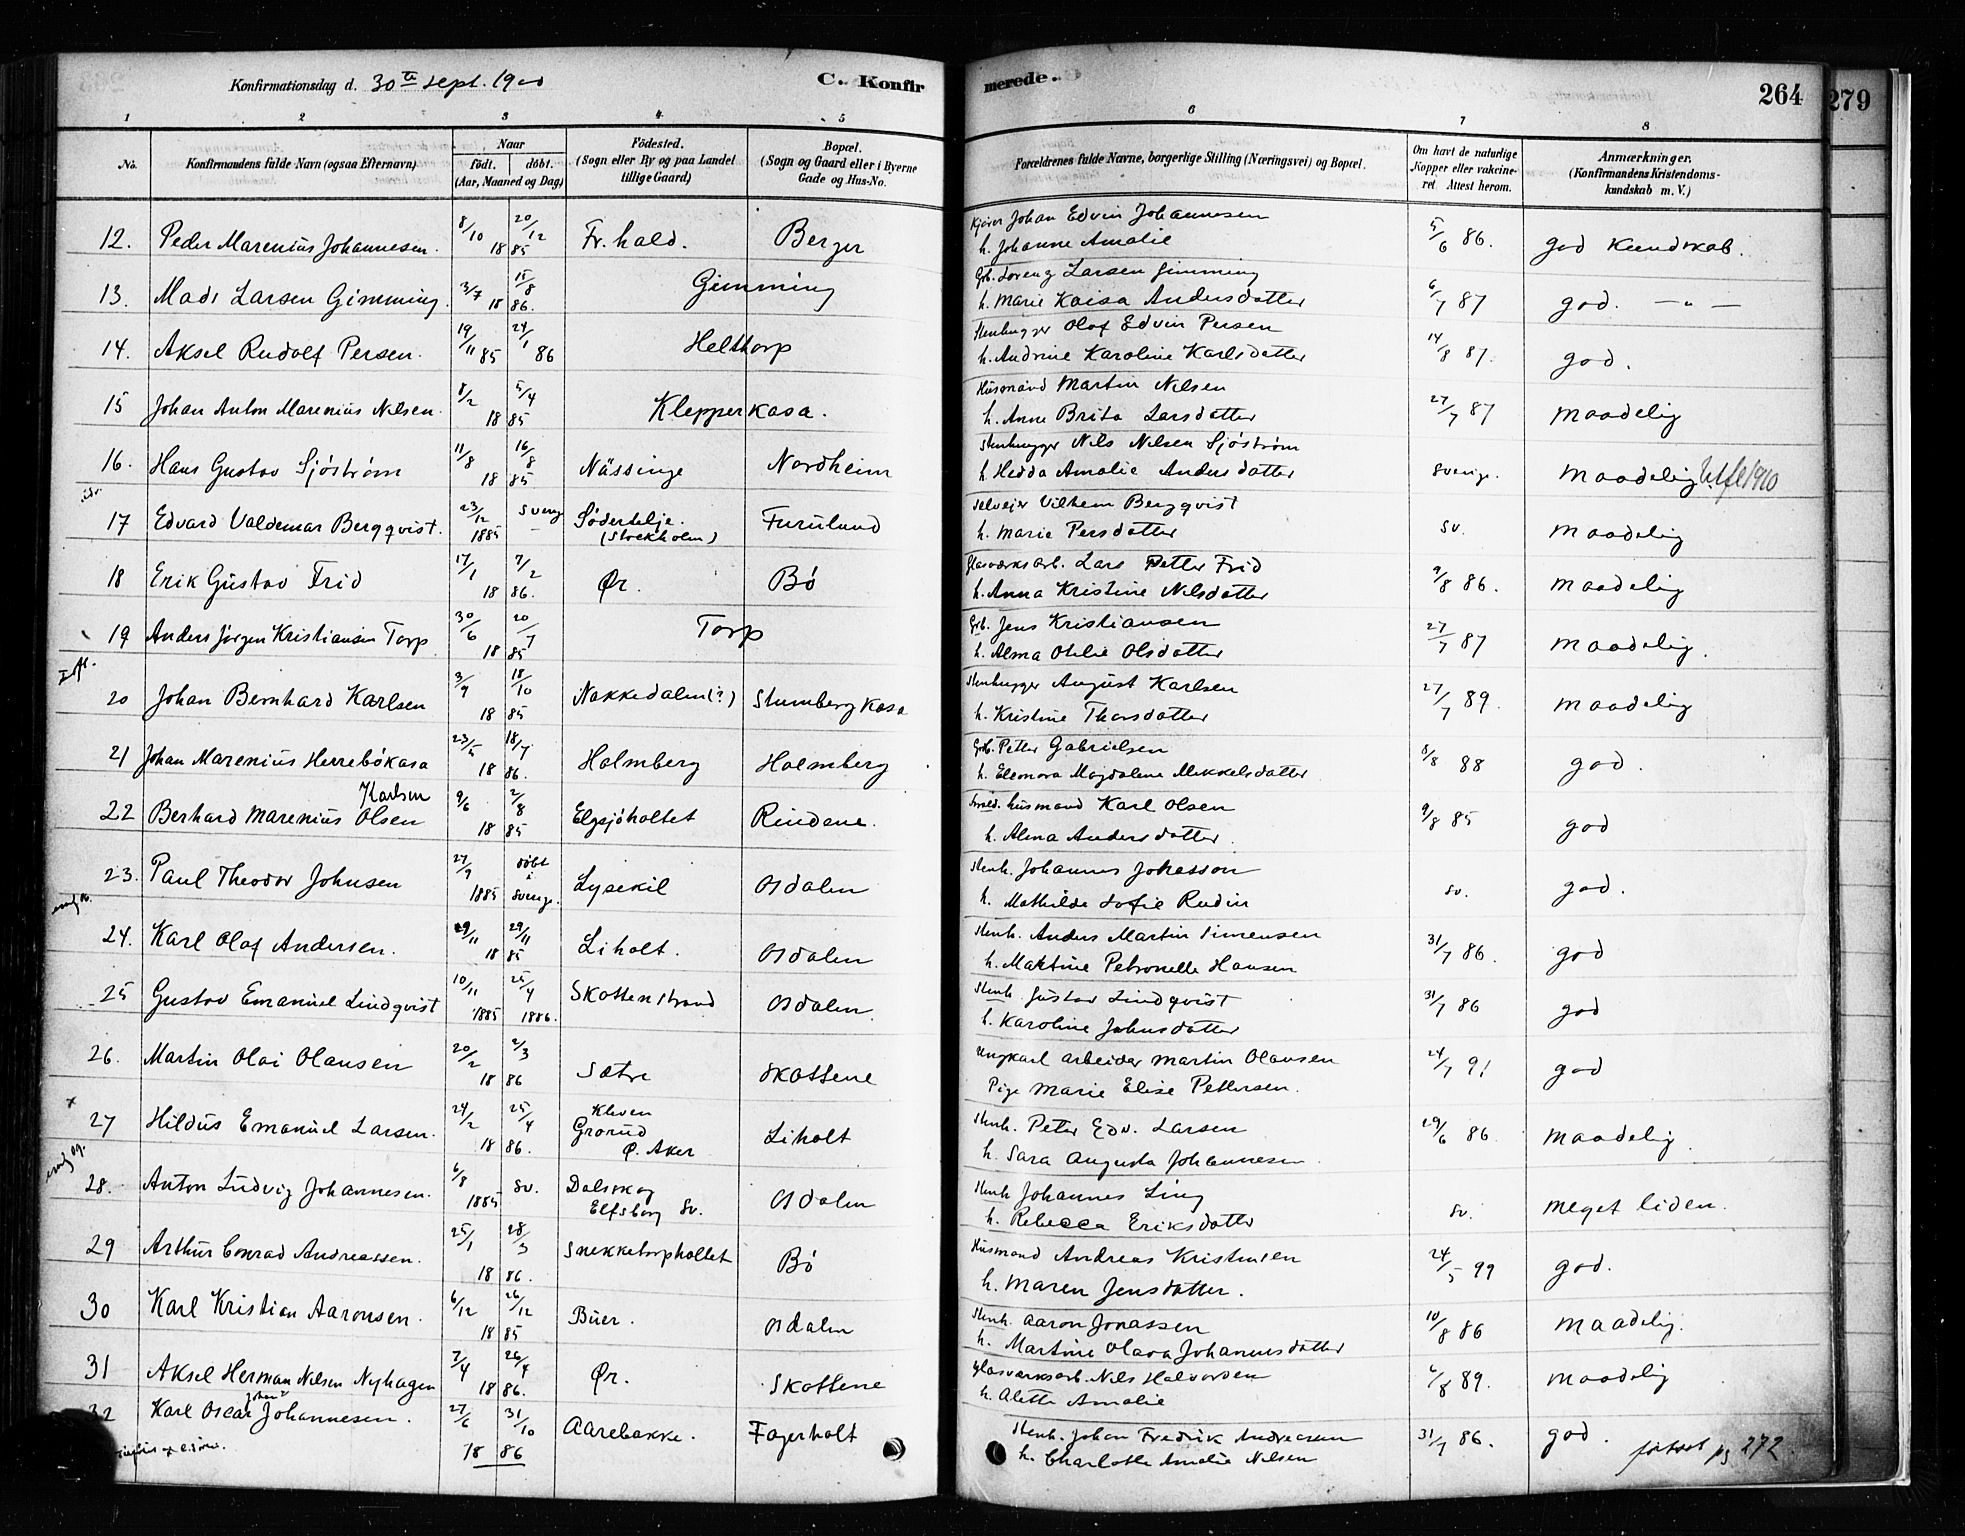 Konfirmationsdag d. 30te Sept. 1900 C. Konfirmerede. 264 279
1 2 3 4 5 6 7 8
No. Konfirmandens fulde Navn (ogsaa Efternavn) Naar födt. döbt. (Aar, Maaned og Dag) Födested. (Sogn eller By og paa Landet tillige Gaard) Bopæl. (Sogn og Gaard eller i Byerne Gade og Hus-No. Forældrenes fulde Navne, borgerlige Stilling (Næringsvei) og Bopæl. Om havt de naturlige Kopper eller vakcineret. Attest herom. Anmærkninger. (Konfirmandens Kristendomskundskab m. V.)
12. Peder Marenius Johannesen. 8/10 20/12 1885 Fr.hald. Berger Kjører Johan Edvin Johannesen 5/6 86. god Kundskab.
h. Johanne Amalie
13. Mads Larsen Gimming. 3/7 15/8 1886. Gimming Grb. Lorenz Larsen Gimming 6/7 87 god. — " —
h. Marie Kaisa Andersdatter
14. Aksel Rudolf Persen. 19/11 85 24/1 86 Helttorp Stenhugger Olof Edvin Persen 14/8 87. god.
h. Andrine Karoline Karlsdatter
15 Johan Anton Marenius Nilsen. 8/2 5/4 1885 Klepperkasa. Husmand Martin Nilsen 27/7 87 maadelig
h. Anne Brita Larsdatter
16. Hans Gustav Sjöström 11/8 16/8 1885. Nässinge Nordheim Stenhugger Nils Nilsen Sjöström Sverige. maadelig Utfl 1910
h. Hedda Amalie Andersdatter
17 Edvard Valdemar Bergqvist. 23/12 1885 Sverig Södertelje. (Stockholm) Furulund Selveier Vilhelm Bergqvist Sv. maadelig
h. Marie Persdatter
18 Erik Gustav Frid 17/1 7/2 1886. Ør. Bö Glasværksarb. Lars Petter Frid 9/8 86. maadelig
h. Anna Kristine Nilsdatter
19 Anders Jörgen Kristiansen Torp 30/6 20/7 1885 Torp Grb. Jens Kristiansen 27/7 87 maadelig.
h. Alma Otilie Olsdatter
20 Johan Bernhard Karlsen 3/9 18/10 1885 Nakkedalen(?) Stumbergkasa Stenhugger August Karlsen 27/7 89. maadelig
h. Kristine Thorsdatter
21 Johan Marenius Herrebökasa 23/5 18/7 1886. Holmberg Holmberg Grb. Petter Gabrielsen 5/8 88 god.
h. Eleonora Magdalene Mikkelsdatter
22 Berhard Marenius Karlsen Olsen 9/6 2/8 1885 Elgsjöholtet Rindane. husmand Karl Olsen 9/8 85 god
h. Alma Andersdatter.
23. Paul Theodor Johnsen 27/9 1885 döbt i Sverige. Lysekil Osdalen Stenh. Johannes Jonasson Sv. god.
h. Mathilde Sofie Rudin
24. Karl Olof Andersen. 29/11 29/11 1885 Liholt. Osdalen Stenh. Anders Martin Simensen 31/7 86. god
h. Maktine Petronelle Hansen
25 Gustav Emanuel Lindqvist 10/11 1885 25/4 1886. Skottenstrand Osdalen. Stenh. Gustav Lindqvist 31/7 86 god
h. Karoline Johnsdatter
26. Martin Olai Olausen 20/2 2/3 1886 Sætre Skottene Ungkarl arbeider Martin Olausen 24/7 91 god
Pige Marie Elise Pettersen.
27 Hildus Emanuel Larsen. 24/2 25/4 1886. Kleven Grorud Ø. Aker Liholt Stenh. Peter Edv. Larsen 29/6 86. maadelig.
h. Sara Augusta Johannesen
28. Anton Ludvig Johannesen. 6/8 1885 Sv. Dalskog Elfsborg Sv. Osdalen Stenh Johannes Ling Sv. meget liden.
h. Rebecca Eriksdatter
29 Arthur Conrad Andreassen. 25/1 28/3 1886. Snekketorpholtet Bö Husmand Andreas Kristensen 24/5 99 god.
h. Maren Jensdatter.
30 Karl Kristian Aaronsen. 6/12 26/12 1885 Buer. Osdalen Stenh. Aaron Jonassen 10/8 86 maadelig.
h. Martine Olava Johannesdatter
31 Aksel Herman Nilsen Nyhagen 7/4 26/4 1886. Ør. Skottene Glasværksarb. Nils Halvorsen 6/8 89. maadelig
h. Alette Amalie
32 Karl Oscar Johan? Johannesen. 27/6 31/10 1886 Aarebakke. Fagerholt Stenh. Johan Fredrik Andreassen 31/7 86. god.
h. Charlotte Amalie Nilsen fortsat pg 272